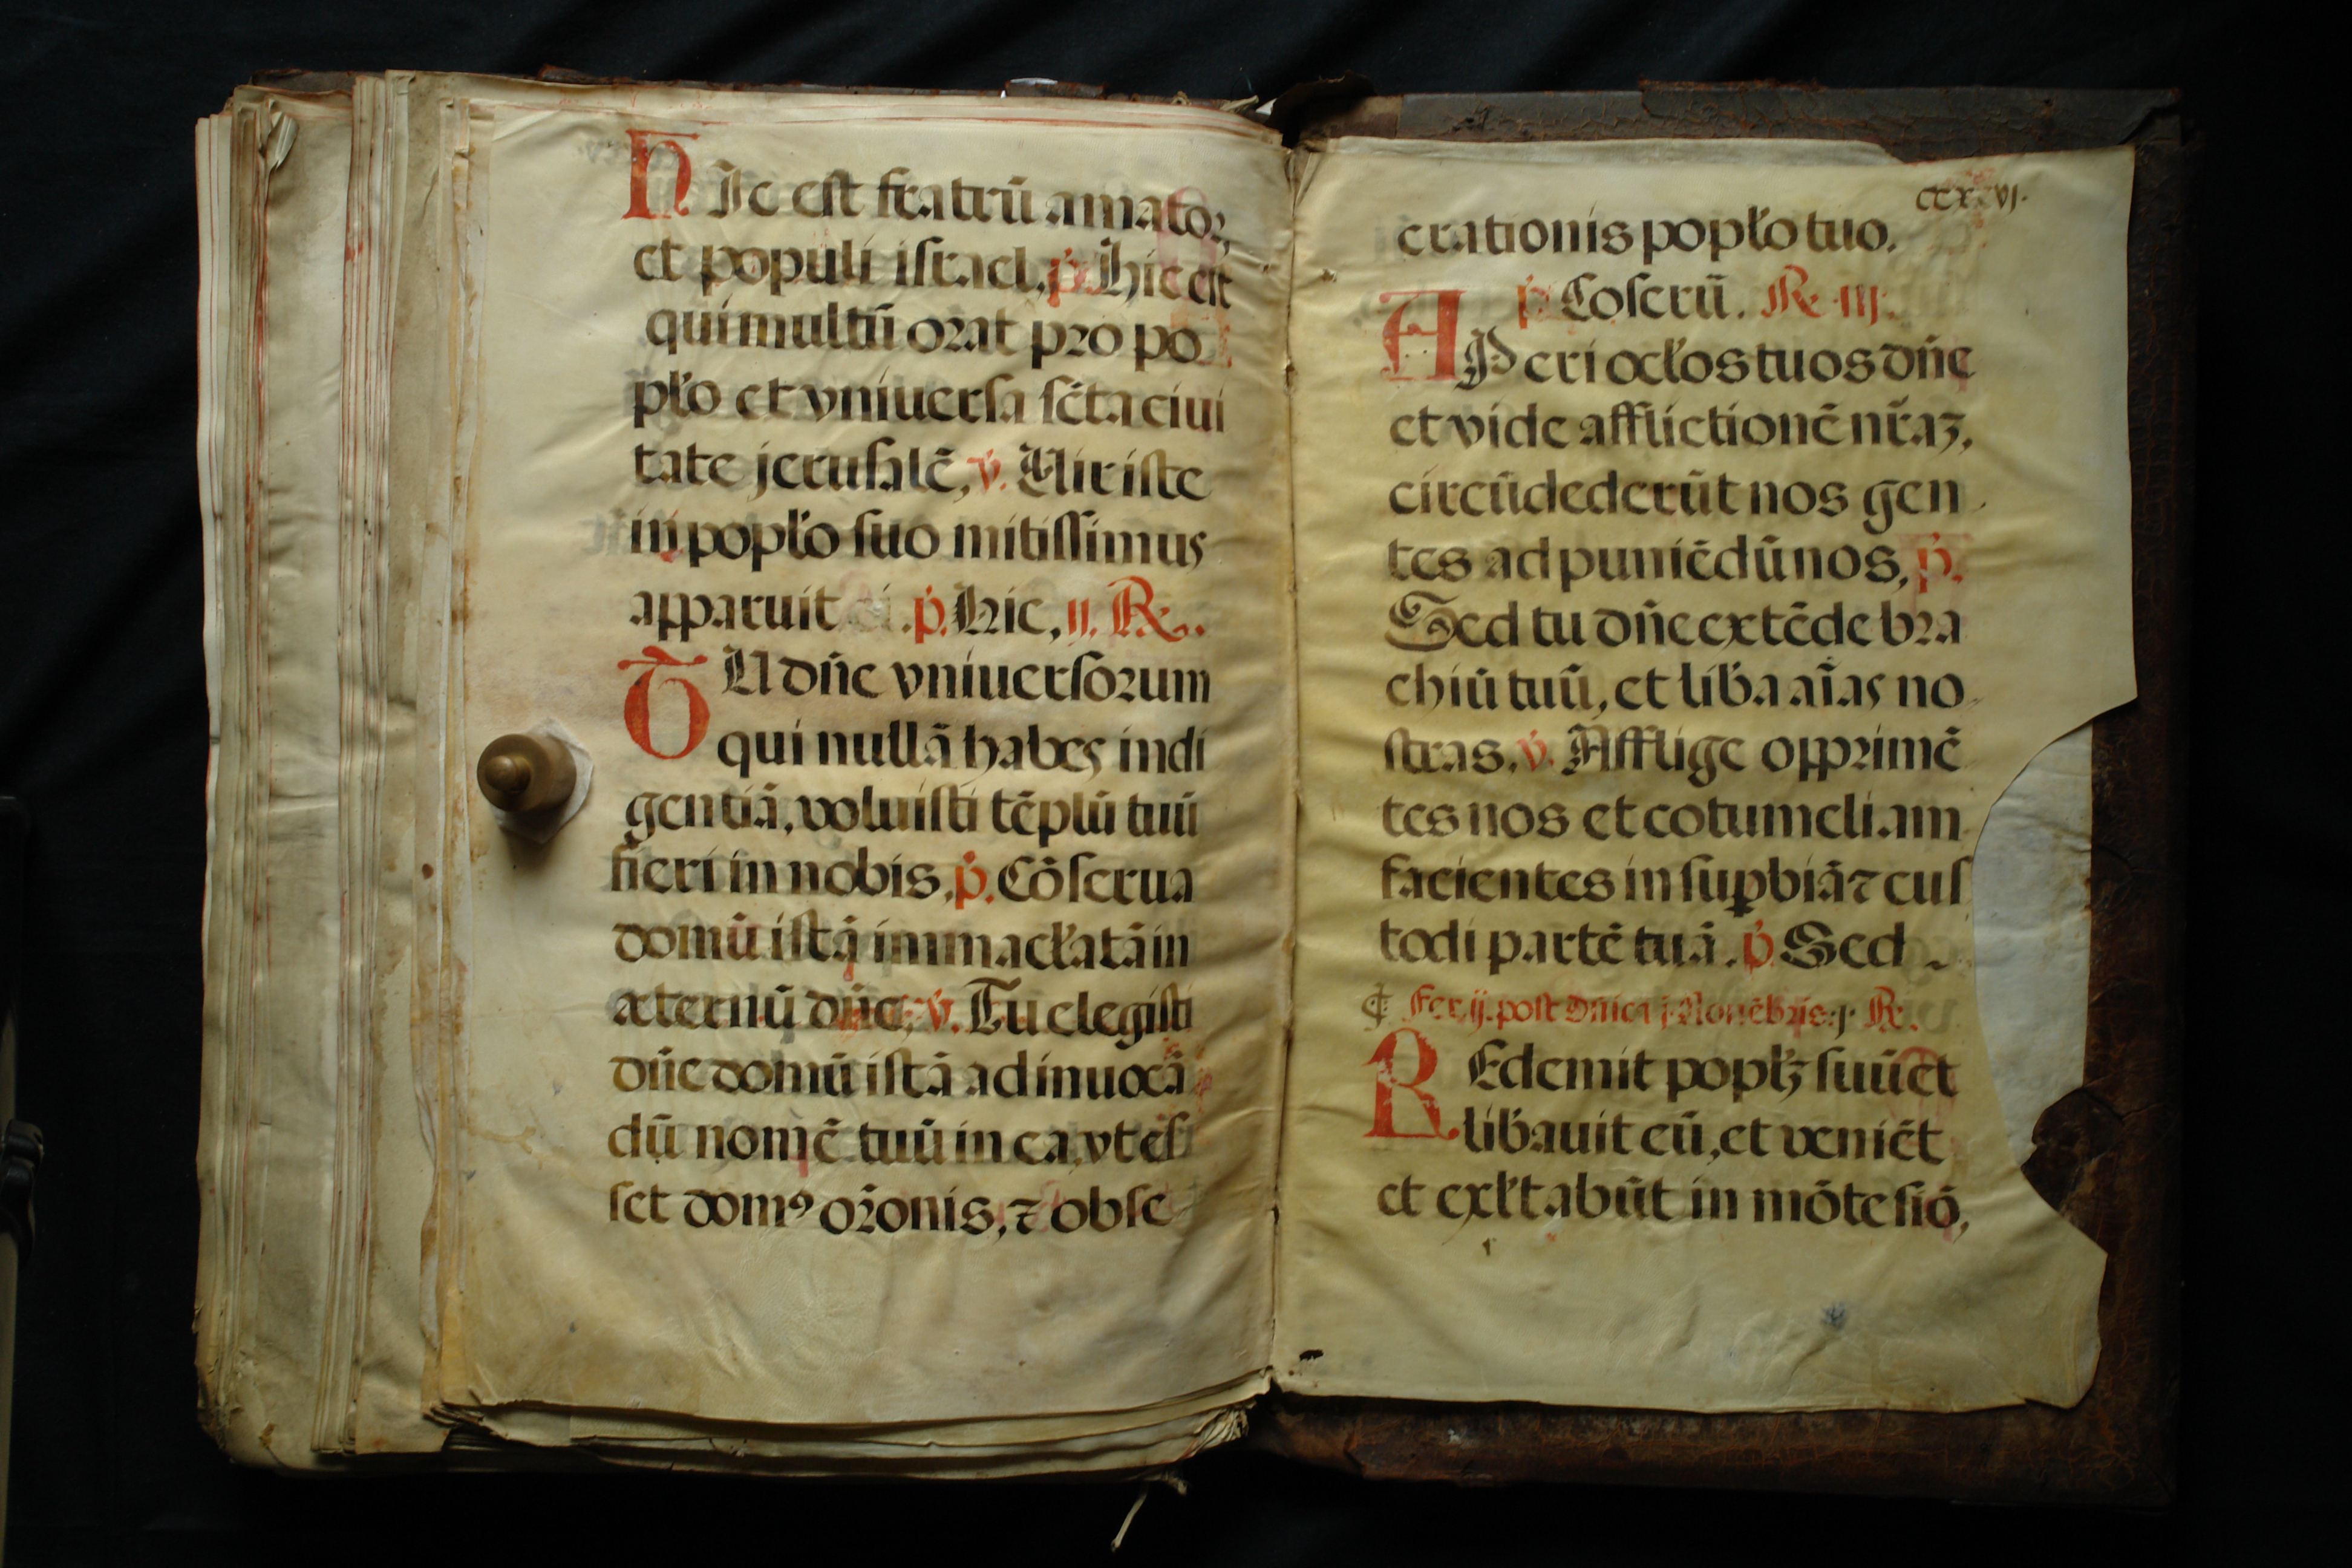 HIc est fratrū amator,
et populi israel, p̓. Hic est
qui multū orat pro po
pl̓o et vniuersa sc̄ta ciui
tate jerusalē, v̓. Uir iste
in popl̓o suo mitissimus
apparuit p̓. Hic, ij. R̷.
TU dn̄e vniuersorum
qui nullā habes indi
gentiā, voluisti tēplū tuū
fieri in nobis, p̓. Cōserua
domū istā immacl̓atā in
æternū dn̄e, v̓. Tu elegisti
dn̄e domū istā ad inuocā
dū nomē tuū in ea, vt es
set domꝰ or̄onis, ⁊ obse
ccxxvj.
crationis popl̓o tuo.
p̓. Coserū. R̷. iij.
APeri ocl̓os tuos dn̄e
et vide afflictionē nr̄aꝫ,
circūdederūt nos gen
tes ad puniēdū nos, p̓.
Sed tu dn̄e extēde bra
chiū tuū, et lib̓a aīas no
stras, v̓. Afflige opprimē
tes nos et cotumeliam
facientes in suꝑbiā ⁊ cus
todi partē tuā. p̓. Sed
¶ Fer. ij. post dn̄ica j. Nouēbris. j. R̷.
REdemit popl̓ꝫ suū et
lib̓auit eū, et veniēt
et exl̓tabūt in mōte siō,